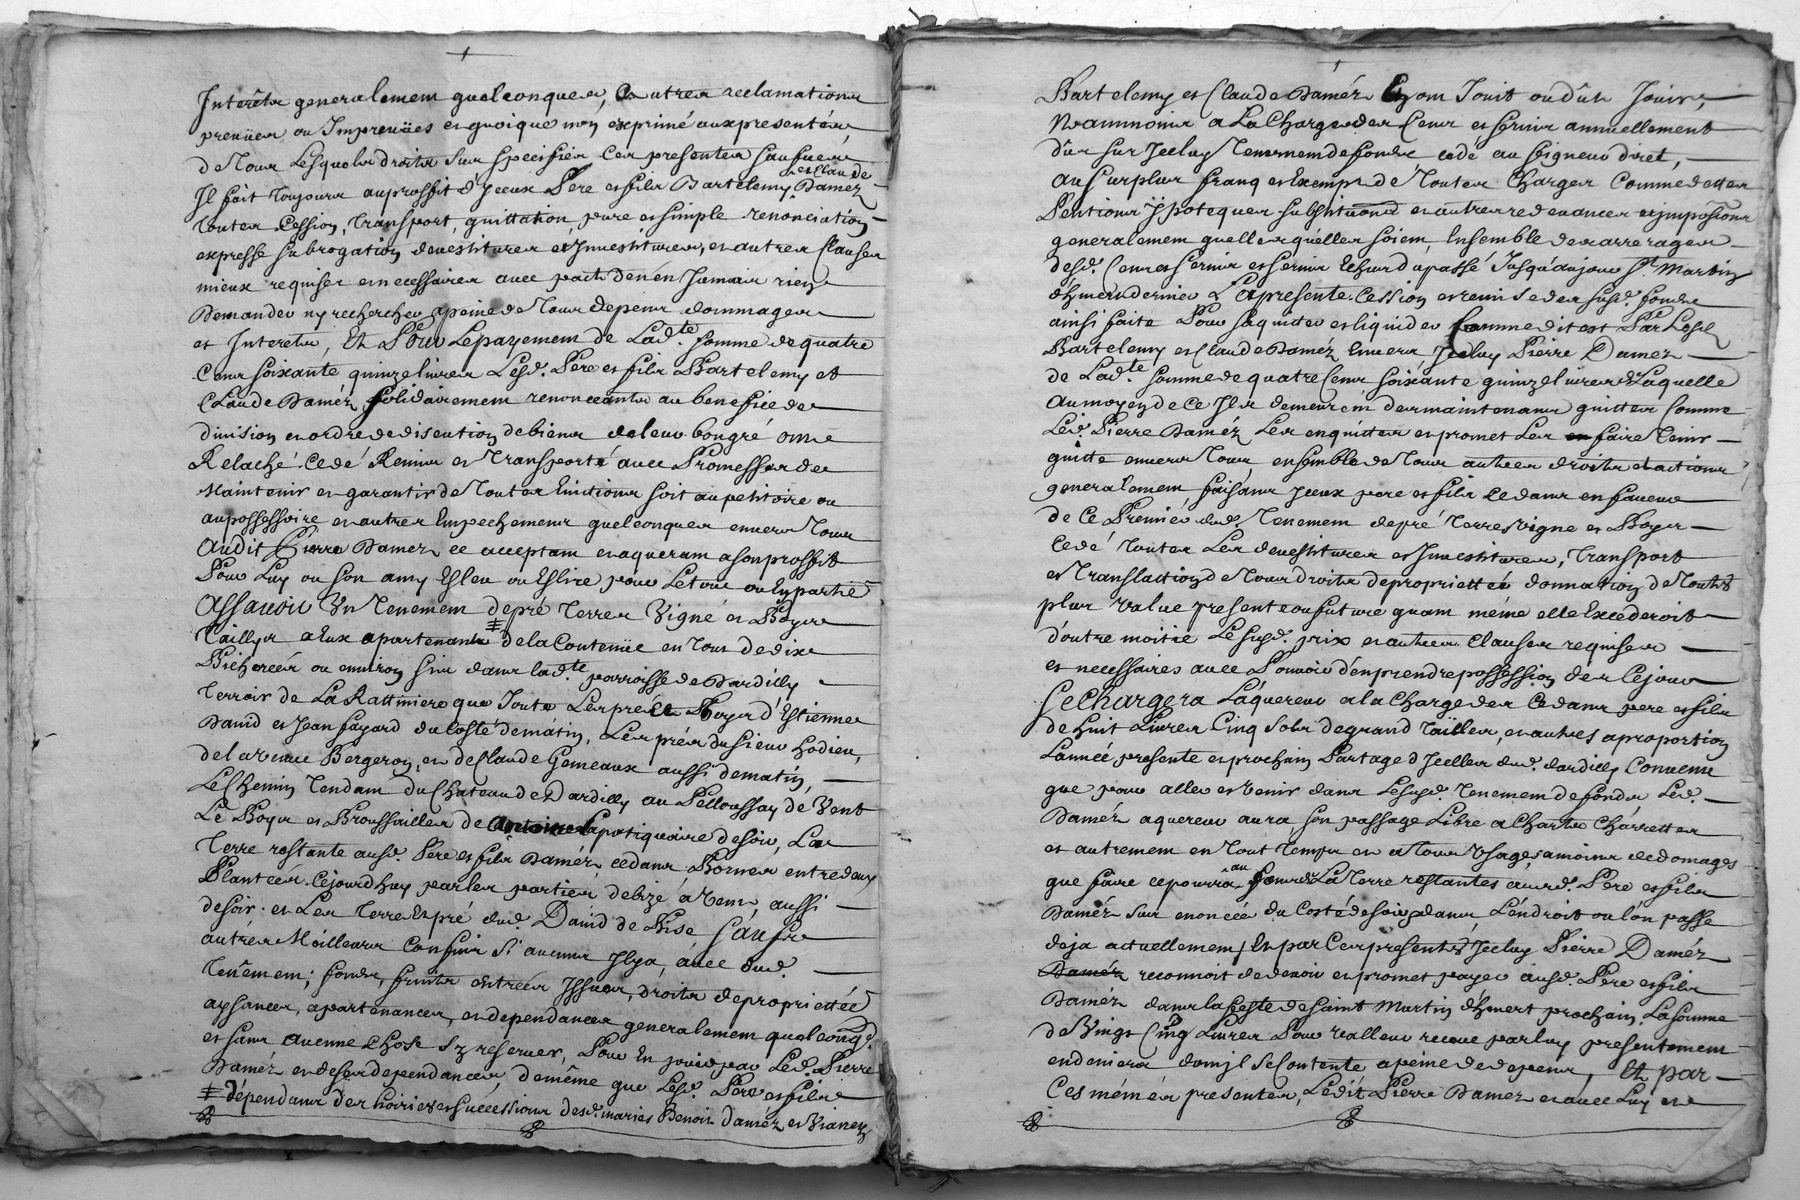 Interêts generalement quelconques, Et autres reclamations
preveües ou Impreveües et quoique non exprimé aux presentes
de tous Lesquels droits sus specifiés Ces presentes
Il fait toujours au proffit d'Iceux Pere et fils Bartelemy et Claude Damez
toutes Cession, transport, quittation, pure et simple renonciation
expresse subrogation devestitures et Investitures, et autres Clauses
mieux requises et necessaires avec pacte de n'en Jamais rien
Demander ny rechercher apeine de tous depens dommages
et Interets, Et Pour Le payement de Lad.te somme de quatre
Cens soixante quinze livres Lesd. Pere et fils Bartelemy et
Claude Daméz solidairement renonceants au benefice de
division et ordre de discution de biens de leur bon gré ont
Relaché Cedé Remis et transporté avec Promesse de
Maintenir et garantir de toutes Evictions soit au petitoire ou
au possessoire et autres Empechements quelconques envers tous
Audit Pierre Damez ce acceptant et aquerant a son proffit
Pour Luy ou son amy Esleu ou Eslire pour Le tout ou En partie
Assavoir Un tenement de pré terres Vigne et Boyr
Taillys a Eux apartenants ‡ de la Contenüe en tout de dix
Bicherées ou environ sis dans lad.te parroisse de Dardilly
terroir de La Rattiniere que Joute Les prés Et Boys d'Estienne
David et Jean fayard du Costé de matin, Les prés du sieur hodieu,
de la veuve Bergeron, et de Claude Gemeaux aussi de matin,
Le Chemin tendant du Chateau de Dardilly au Pelloussay de Vent
Le Boys et Broussailles de Antoine Lapotiquaire de soir, La
terre restante ausd. Pere et fils Daméz, cedants Bornes entre deux
Plantées Cejourdhuy par les parties de bize, a vent, aussi
de soir et Les terre Et pré dud. David de Bise sauf
autres Meilleurs Confins si aucuns Ilya, avec dud.
tenement; fonds, fruits entrées Issues, droits de proprietté
aysances, apartenances, et dependances generalement quelconq.
et sans aucune Chose s'y reserver, Pour En jouir par Led. Pierre
Daméz et des dependances, de même que Lesd. Pere et fils
‡ dépendants des hoiries et successions desd. mariés Benoit Daméz et Vianey
Bartelemy et Claude Daméz En ont Jouit ou dû Jouir,
Neammoins a La Charge des Cens et servis annuellement
dûs sur Icelluy tenement de fonds cedé au seigneur direct,
au surplus franq et Exempt de toutes Charges Comme dettes
Pentions Ypoteques substitutions et autres redevances et impositions
generalement quelles qu'elles soient Ensemble des arrerages
desd. Cens et servis Echus du passé Jusqu'aujour St. Martin
d'hiver dernier Et la presente Cession et remise des susd. fonds
ainsi faite Pour s'aquitter et liquider Comme dit est Par Lesd.
Bartelemy et Claude Daméz Envers Jcelluy Pierre Damez
de Lad.te somme de quatre Cens soixante quinze livres De Laquelle
Aumoyen de ce Ils demeurent des maintenant quittes Comme
Led. Pierre Damez Les enquitte et promet Les faire tenir
quitte envers tous, ensemble de tous autres droits et actions
generalement faisants Jceux pere et fils Cedants en faveur
de Ce Premier dud. tenement de pré terres Vigne et Boys
Cedé toutes Les devestitures et Investitures, transport
et translaction de tous droits de proprietté donnation de toute
plus value presente ou future quant même elle Excederoit
d'outre moitié Le susd. prix et autres Clauses requises
et necessaires avec Pouvoir d'en prendre possession dez Cejour
Se Chargera L'aquereur a la Charge des Cedants pere et fils
de huit Livres Cinq sols de grand tailles, et autres a proportion
L'année presente et prochain Partage d'Jcelles dud. dardilly Convenu
que pour aller et venir dans Le susd. tenement de fonds Led.
Daméz aquereur aura son passage Libre a Chars Charrettes
et autrement en tout temps et a tous Usages amoins de domages
que faire ce pourra au fonds La terre restantes ausd. Pere et fils
Daméz sus enoncée du Costé de soir, dans L'endroit ou l'on passe
deja actuellement, Et par Ces presentes Jcelluy Pierre Daméz
Daméz reconnoit de devoir et promet payer ausd. Pere et fils
Daméz dans la feste de saint Martin d'hivert prochain. La somme
de Vingt Cinq Livres Pour valleur recue par luy presentement
en deniers dont jl se Contente apeine de depens, Et par
Ces mémes presentes, Ledit Pierre Damez et avec Luy